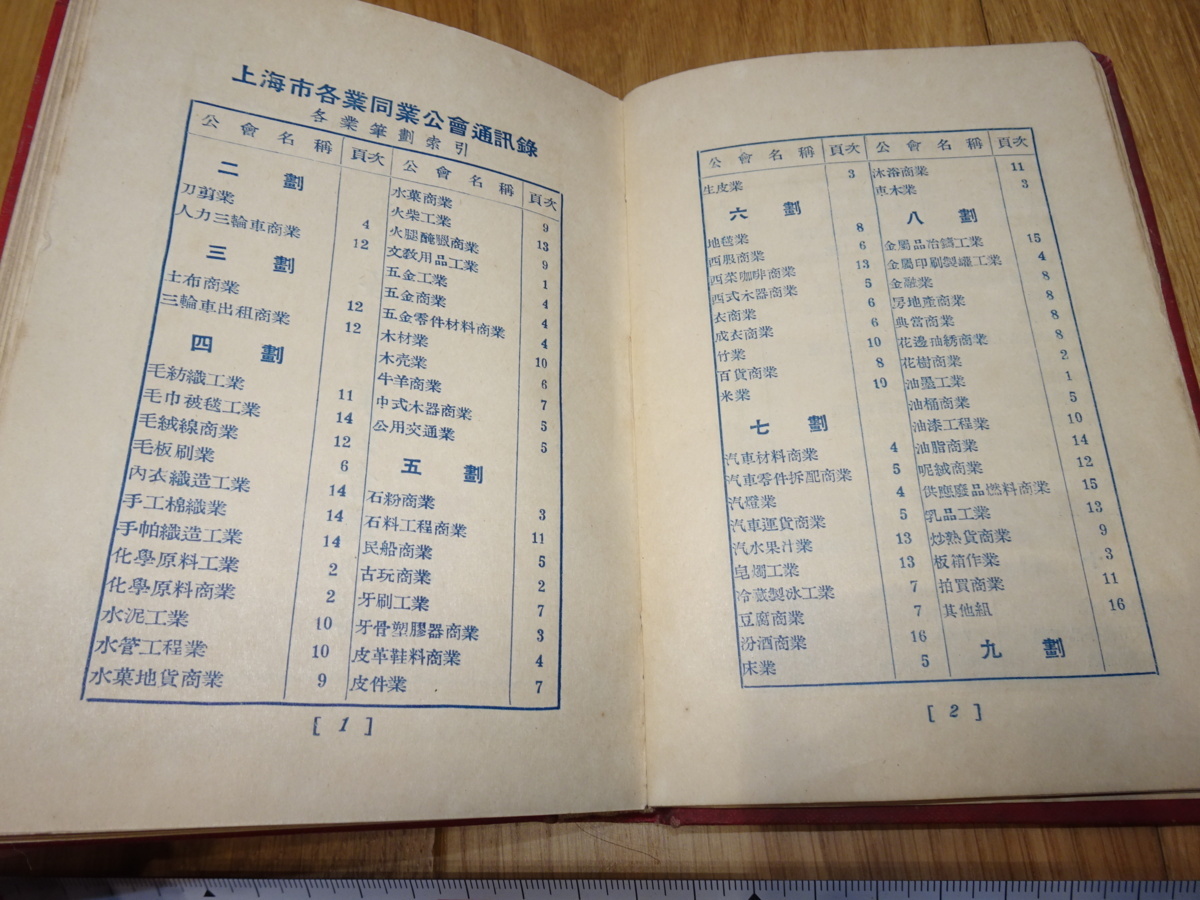 上海市各業同業公會通訊錄
各業筆劃索引
公會名稱 頁次
二劃
刀剪業 4
人力三輪車商業 12
三劃
土布商業 12
三輪車出租商業 12
四劃
毛紡織工業 11
毛巾被毯工業 14
毛絨線商業 12
毛板刷業 6
內衣織造工業 14
手工棉織業 14
手帕織造工業 14
化學原料工業 2
化學原料商業 2
水泥工業 10
水管工程業 10
水菓地貨商業 9
公會名稱 頁次
水菓商業 9
火柴工業 13
火腿醃臘商業 9
文教用品工業 1
五金工業 4
五金商業 4
五金零件材料商業 4
木材業 10
木壳業 6
牛羊商業 7
中式木器商業 5
公用交通業 5
五劃
石粉商業 3
石料工程商業 11
民船商業 5
古玩商業 2
牙刷工業 7
牙骨塑膠器商業 3
皮革鞋料商業 4
皮件業 7
[ 1 ]
公會名稱 頁次
生皮業 3
六劃
地毯業 8
西服商業 6
西菜咖啡商業 13
西式木器商業 5
衣商業 6
成衣商業 6
竹業 10
百貨商業 8
米業 19
七劃
汽車材料商業 4
汽車零件拆配商業 5
汽燈業 4
汽車運貨商業 5
汽水果汁業 13
皂燭工業 13
冷藏製冰工業 7
豆腐商業 7
汾酒商業 16
床業 5
公會名稱 頁次
沐浴商業 11
車木業 3
八劃
金屬品冶鑄工業 15
金屬印刷製罐工業 4
金融業 8
房地產商業 8
典當商業 8
花邊抽綉商業 8
花樹商業 2
油墨工業 1
油桶商業 5
油漆工程業 10
油脂商業 14
呢絨商業 12
供應廢品燃料商業 15
乳品工業 13
炒熟貨商業 9
板箱作業 3
拍買商業 11
其他組 16
九劃
[ 2 ]